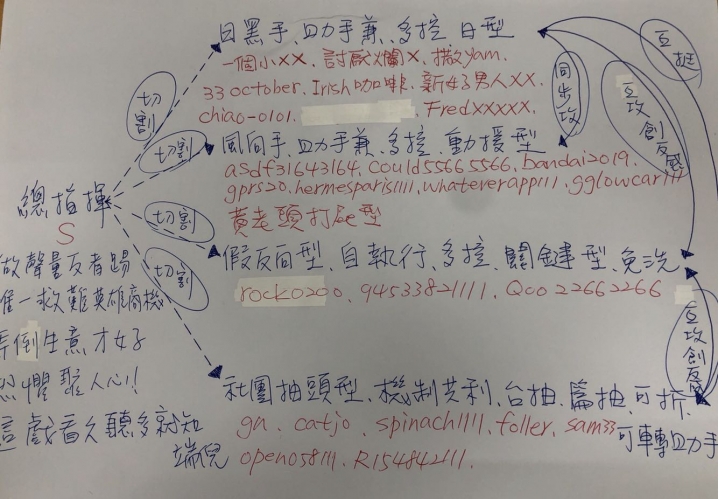 日黑手、助手兼、多控、日型
一個小XX、討厭爛X、撒yam.
33 october、Irish咖啡、新好男人XX.
chiao-0101、
FredXXXXX.
切割
同步攻
互挺
互攻創反感
風向手、助手兼、多控、動援型
asdf31643164、could55665566、bandai2019、
gprs20、hermesparis1111、whateverapp111、gglowcar111
黃老頭打屁型
切割
總指揮
S
切割
假反面型、自執行、多控、關鍵型、免洗
rock0200、94533821111、Qoo22662266
切割
做聲量反者踢
唯一救難英雄商機
弄倒生意才女子
恐懼聚人心!!
這戲看久聽多就知
端倪
互攻創反感
社團抽頭型、機制共利、台抽、篇抽、可拆、
gn、catjo、spinach1111、foller、sam33
可轉助手
open058111、R154842111.